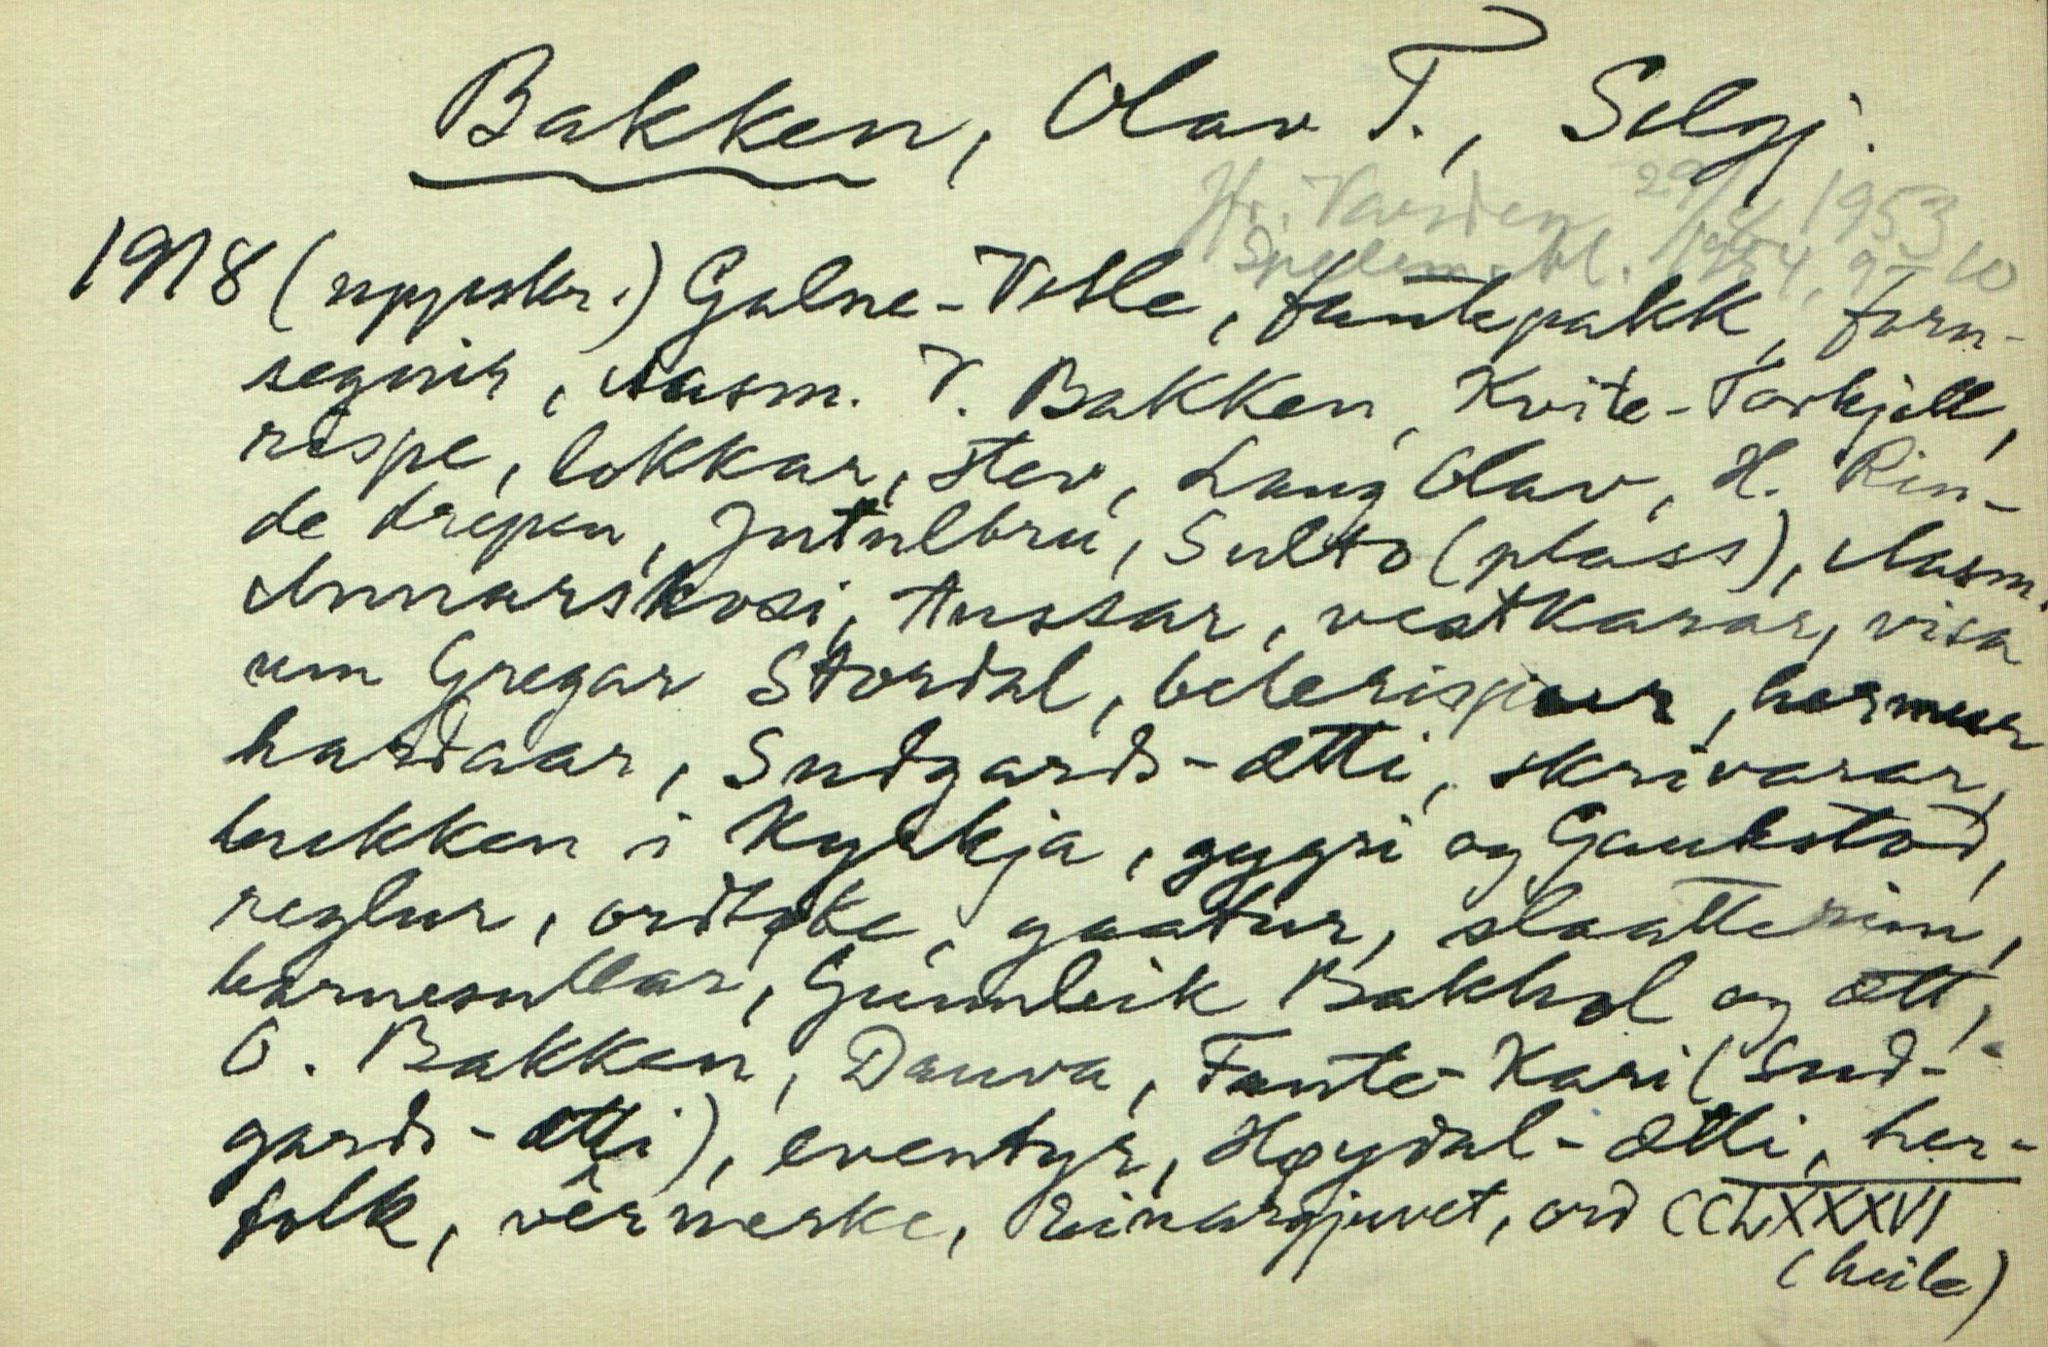 Bakken, Olav T., Selgj.
Jfr. Varden 29/8 1953
Spelem-bl. 1954, 9-10
1918 (uppskr.) Galne-Vetle, fantepakk, forn-
segner, Aasm. V. Bakken, Kvite-Torkjell,
rispe, lokkar, stev, Lang Olav, H. Rin-
de drepen, Jutulbru, Sulto (plass), Aasm.
Annarskosi, tussar, veatkarar, visa
um Gregar Stordal, belerispur, hermur
hardaar, Sudgards-ætti, skrivarar,
bukken i kyrkja, gygri og Gaukstod,
reglur, ordtøke, gaatur, slaatterim,
barnesullar, Gunnleik Bakhol og ætt,
O. Bakken, Dauva, Fante-Kari (Sud-
gards-ætti), eventyr, Høydal-ætti, her-
folk, vêrmerke, Einargjuvet, ord CCLXXXVI
(heile)